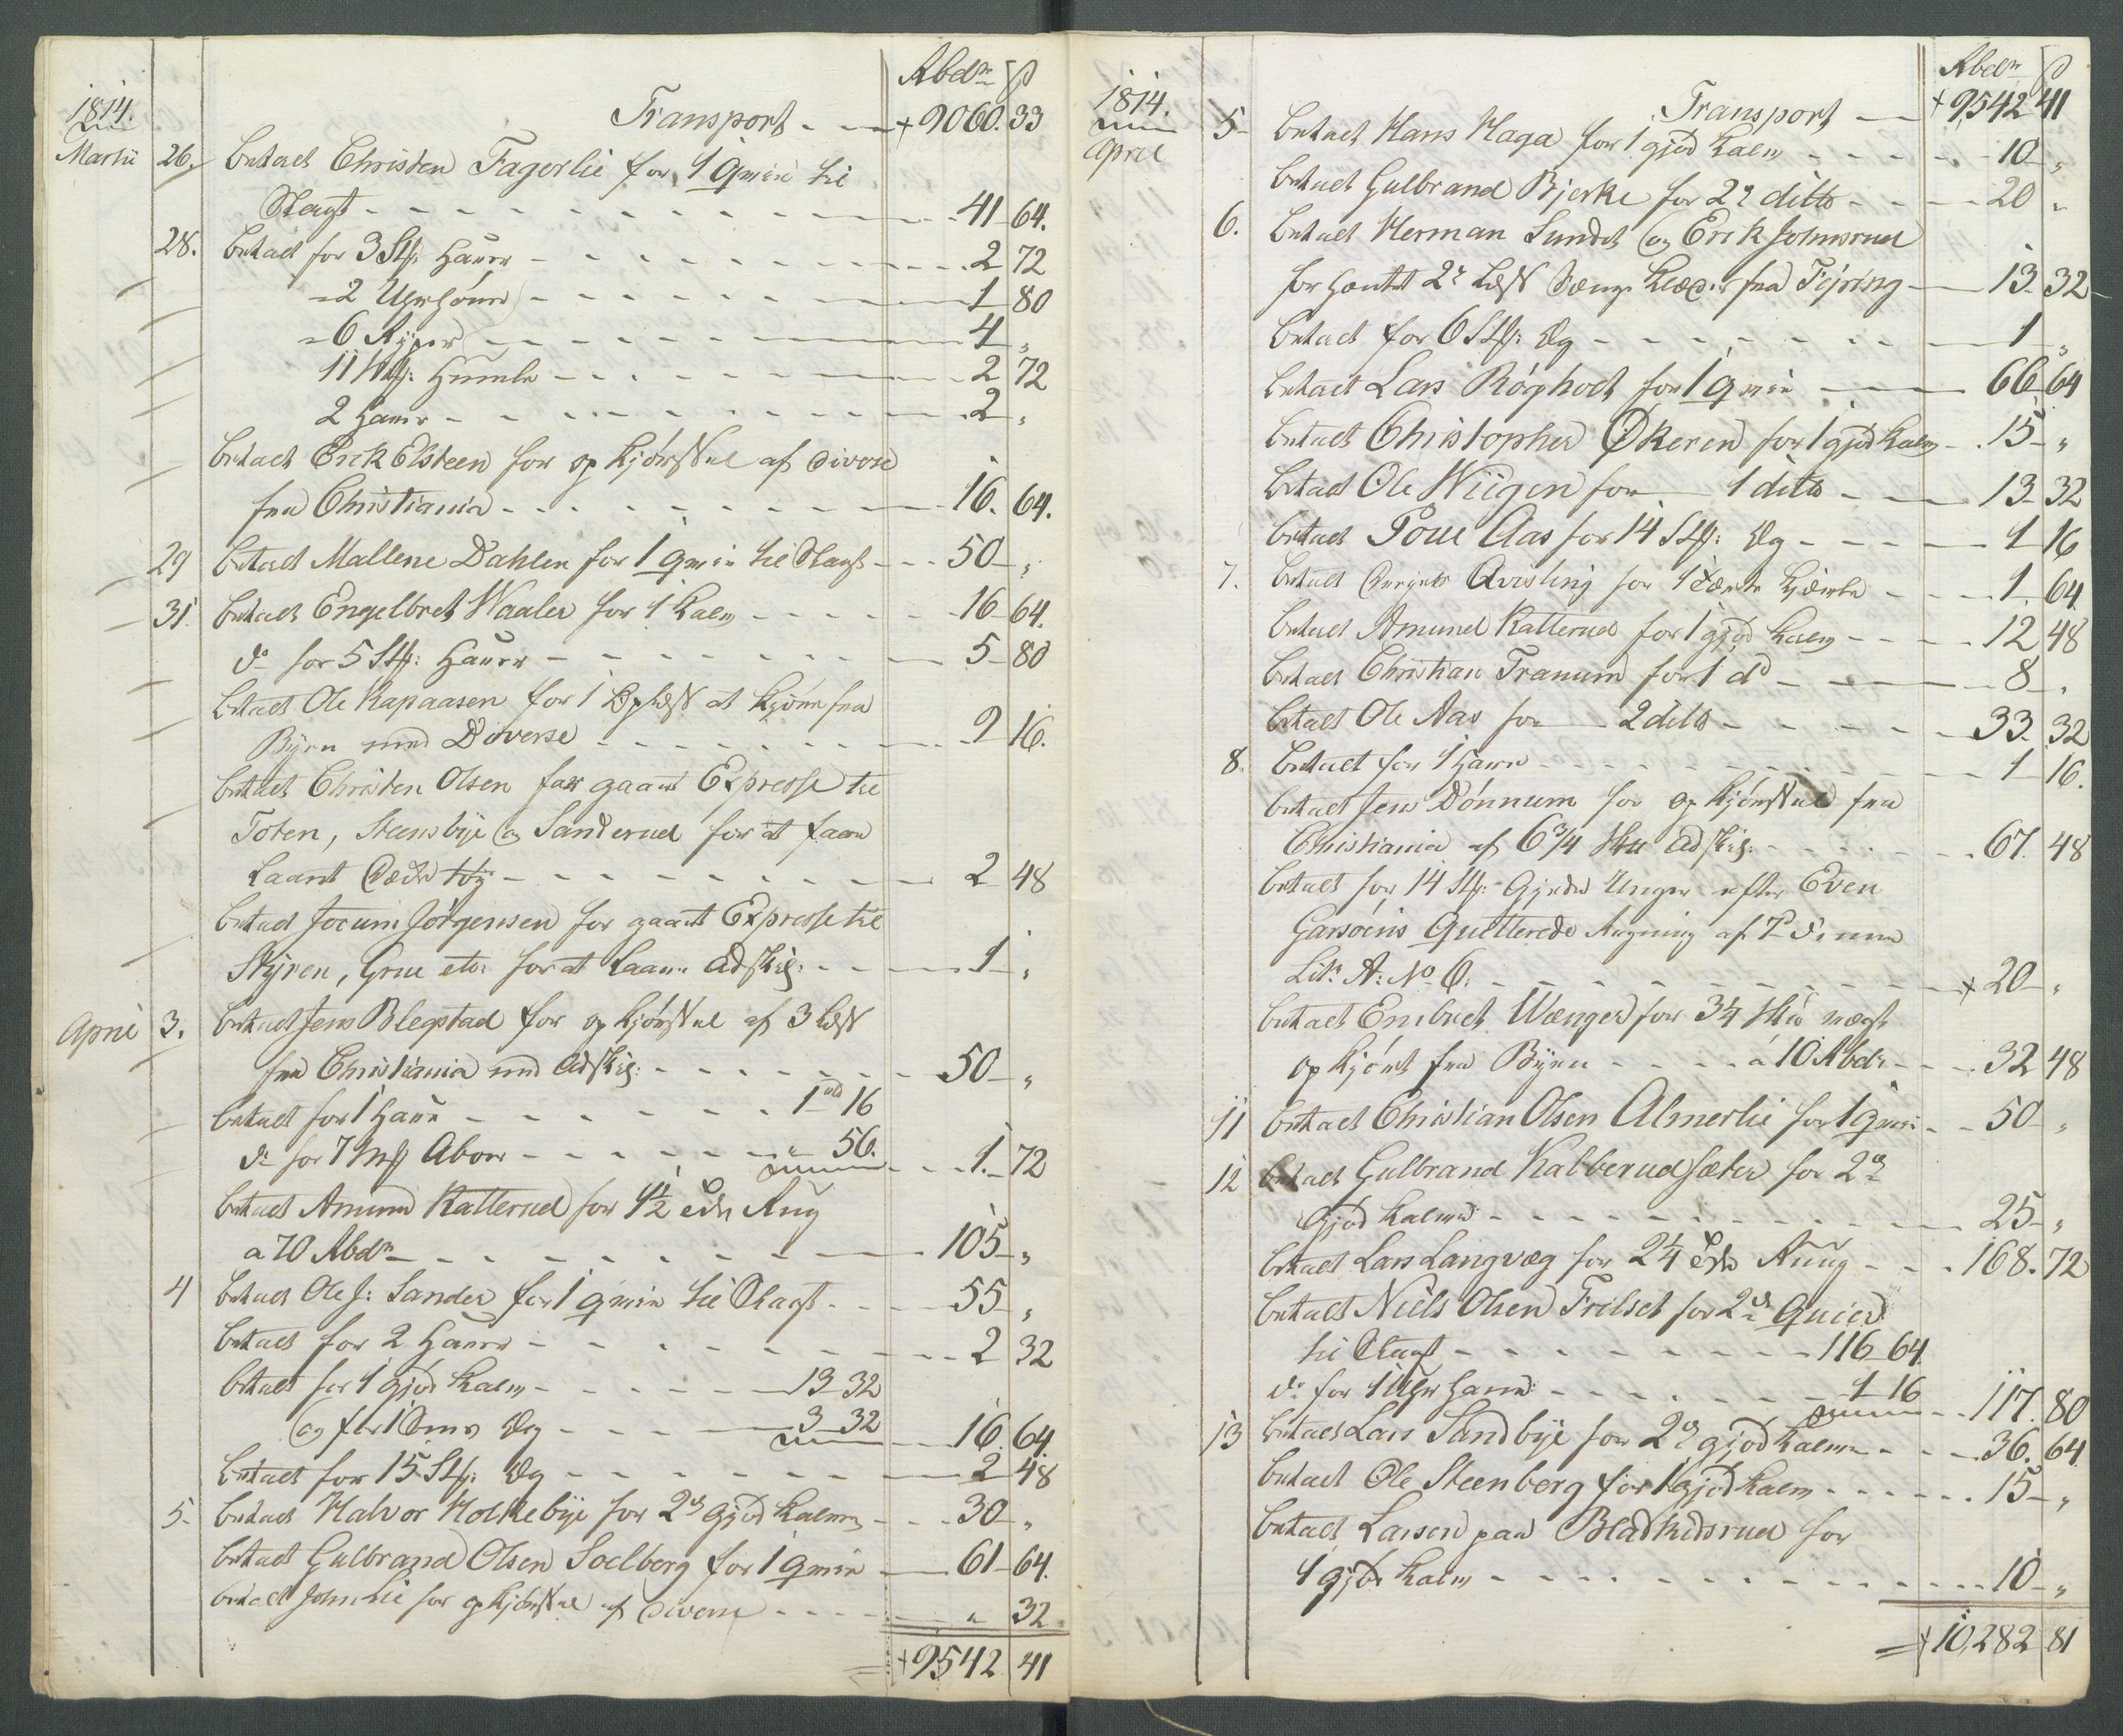 Rbdr ß
1814. Transport - - - + 9060. 33
Martii 26. betalt Christen Fagerlie for 1 qvie til
Slagt - - - 41 64.
28. betalt for 3 Stk: Harer - - - 2 72
- 2 Uhrhøner - - - 1 80
- 6 Ryper - - - 4 "
11 Mk: Humle - - - 2 72
2 Harer - - - 2 "
betalt Erik Elsteen for opkjørsel af diverse
fra Christiania - - - 16. 64.
29 betalt Mallene Dahlen for 1 qvie til Slagt - - - 50 "
31. betalt Engelbret Waaler for 1 Kalv - - - 16 64.
do for 5 Stk: Harer - - - 5 80
betalt Ole Rapaasen for 1 Oplæs at kjøre fra
Byen med Diverse - - - 9 16.
betalt Christen Olsen for gaaet Expresse til
Toten, Steensbye og Sanderud for at faae
Laant Dække tøy - - - 2 48
betalt Jocum Jørgensen for gaaet Expresse til
Skyren, Grue etc: for at Laane adskil: - - - 1 "
April 3. betalt Jens Blegstad for opkjørsel af 3 Læs
fra Christiania med adskil: - - - 50 "
betalt for 1 Hare - - - 1 16
do for 7 Mk Abor - - - " 56. - - - 1. 72
betalt Amund Katterud for 1½ Tde Rug
a 70 Rbdr - - - 105 "
4 betalt Ole J: Sander for 1 qvie til Slagt - - - 55 "
betalt for 2 Harer - - - 2 32
betalt for 1 gjød Kalv - - - 13 32
og for 1 Snes Æg - - - 3 32 - - - 16. 64.
betalt for 15 Stk: Æg - - - 2 48
5. betalt Halvor Holkebye for 2de gjød Kalver - - - 30 "
betalt Gulbrand Olsen Soelberg for 1 qvie - - - 61 64.
betalt John Lie for opkjørsel af diverse - - - " 32
= + 9542 41
Rbdr ß
1814. Transport - + 9542 41
April 5 betalt Hans Haga for 1 gjød Kalv - - - 10 "
betalt Gulbrand Bjerke for 2de ditto - - - 20 "
6. betalt Herman Sundet og Erik Johnsrud
for hentet 2de Læs Senge Klæder fra Fejring - 13 32
betalt for 6 Stk: Æg - - - 1 "
betalt Lars Røgholt for 1 qvie - - - 66 64
betalt Christopher Økeren for 1 gjød Kalv - 15 "
betalt Ole Wiigen for 1 ditto - - - 13 32
betalt Poul Aas for 14 Stk: Æg - - - 1 16
7. betalt Qvisling for 1 - - - 1. 64.
betalt Amund Katterud for 1 gjød Kalv - - - 12 48
betalt Christian Tranum for 1 do - - - 8 "
betalt Ole Aas for 2 ditto - - - 33. 32
8. betalt for 1 Hare - - - 1 16.
betalt Jens Dønnum for opkjørsel fra
Christiania af 6¾ Sku adskil: - - - 67. 48
betalt for 14 Stk: Gjedde Unger efter Even
Garsøens Qvitterede Regning af 7de denne
Litr A: No 6: - - - + 20 "
betalt Embret Wanger for 3¼ Sku vægt
opkjørt fra Byen - - - á 10 Rbdr - - - 32 48
11 betalt Christian Olsen Almerlie for 1 qvie - - 50 "
12 betalt Gulbrand Kalberudsæter for 2de
Gjød Kalver - - - 25 "
betalt Lars Langvæg for 2¼ Tde Rug - - - 168. 72
betalt Niels Olsen Frilset for 2de Qvier
til Slagt - - - 116 64
do for 1 Uhr Hane - - - 1 16 - - 117. 80
13 betalt Lars Sandbye for 2de gjød Kalve - - - 36. 64
betalt Ole Steenberg for 1 gjød Kalv - - - 15 "
betalt Larsen paa Bladkidsrud for
1 gjød Kalv - - - 10 "
= + 10,282 81